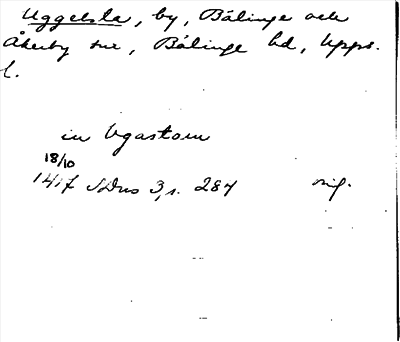 Uggelsta, by, Bälinge och
Åkerby snr, Bälinge hd, Upps.
l.
in Ugastom
18/10
1417 SDns 3, s. 284 orig.